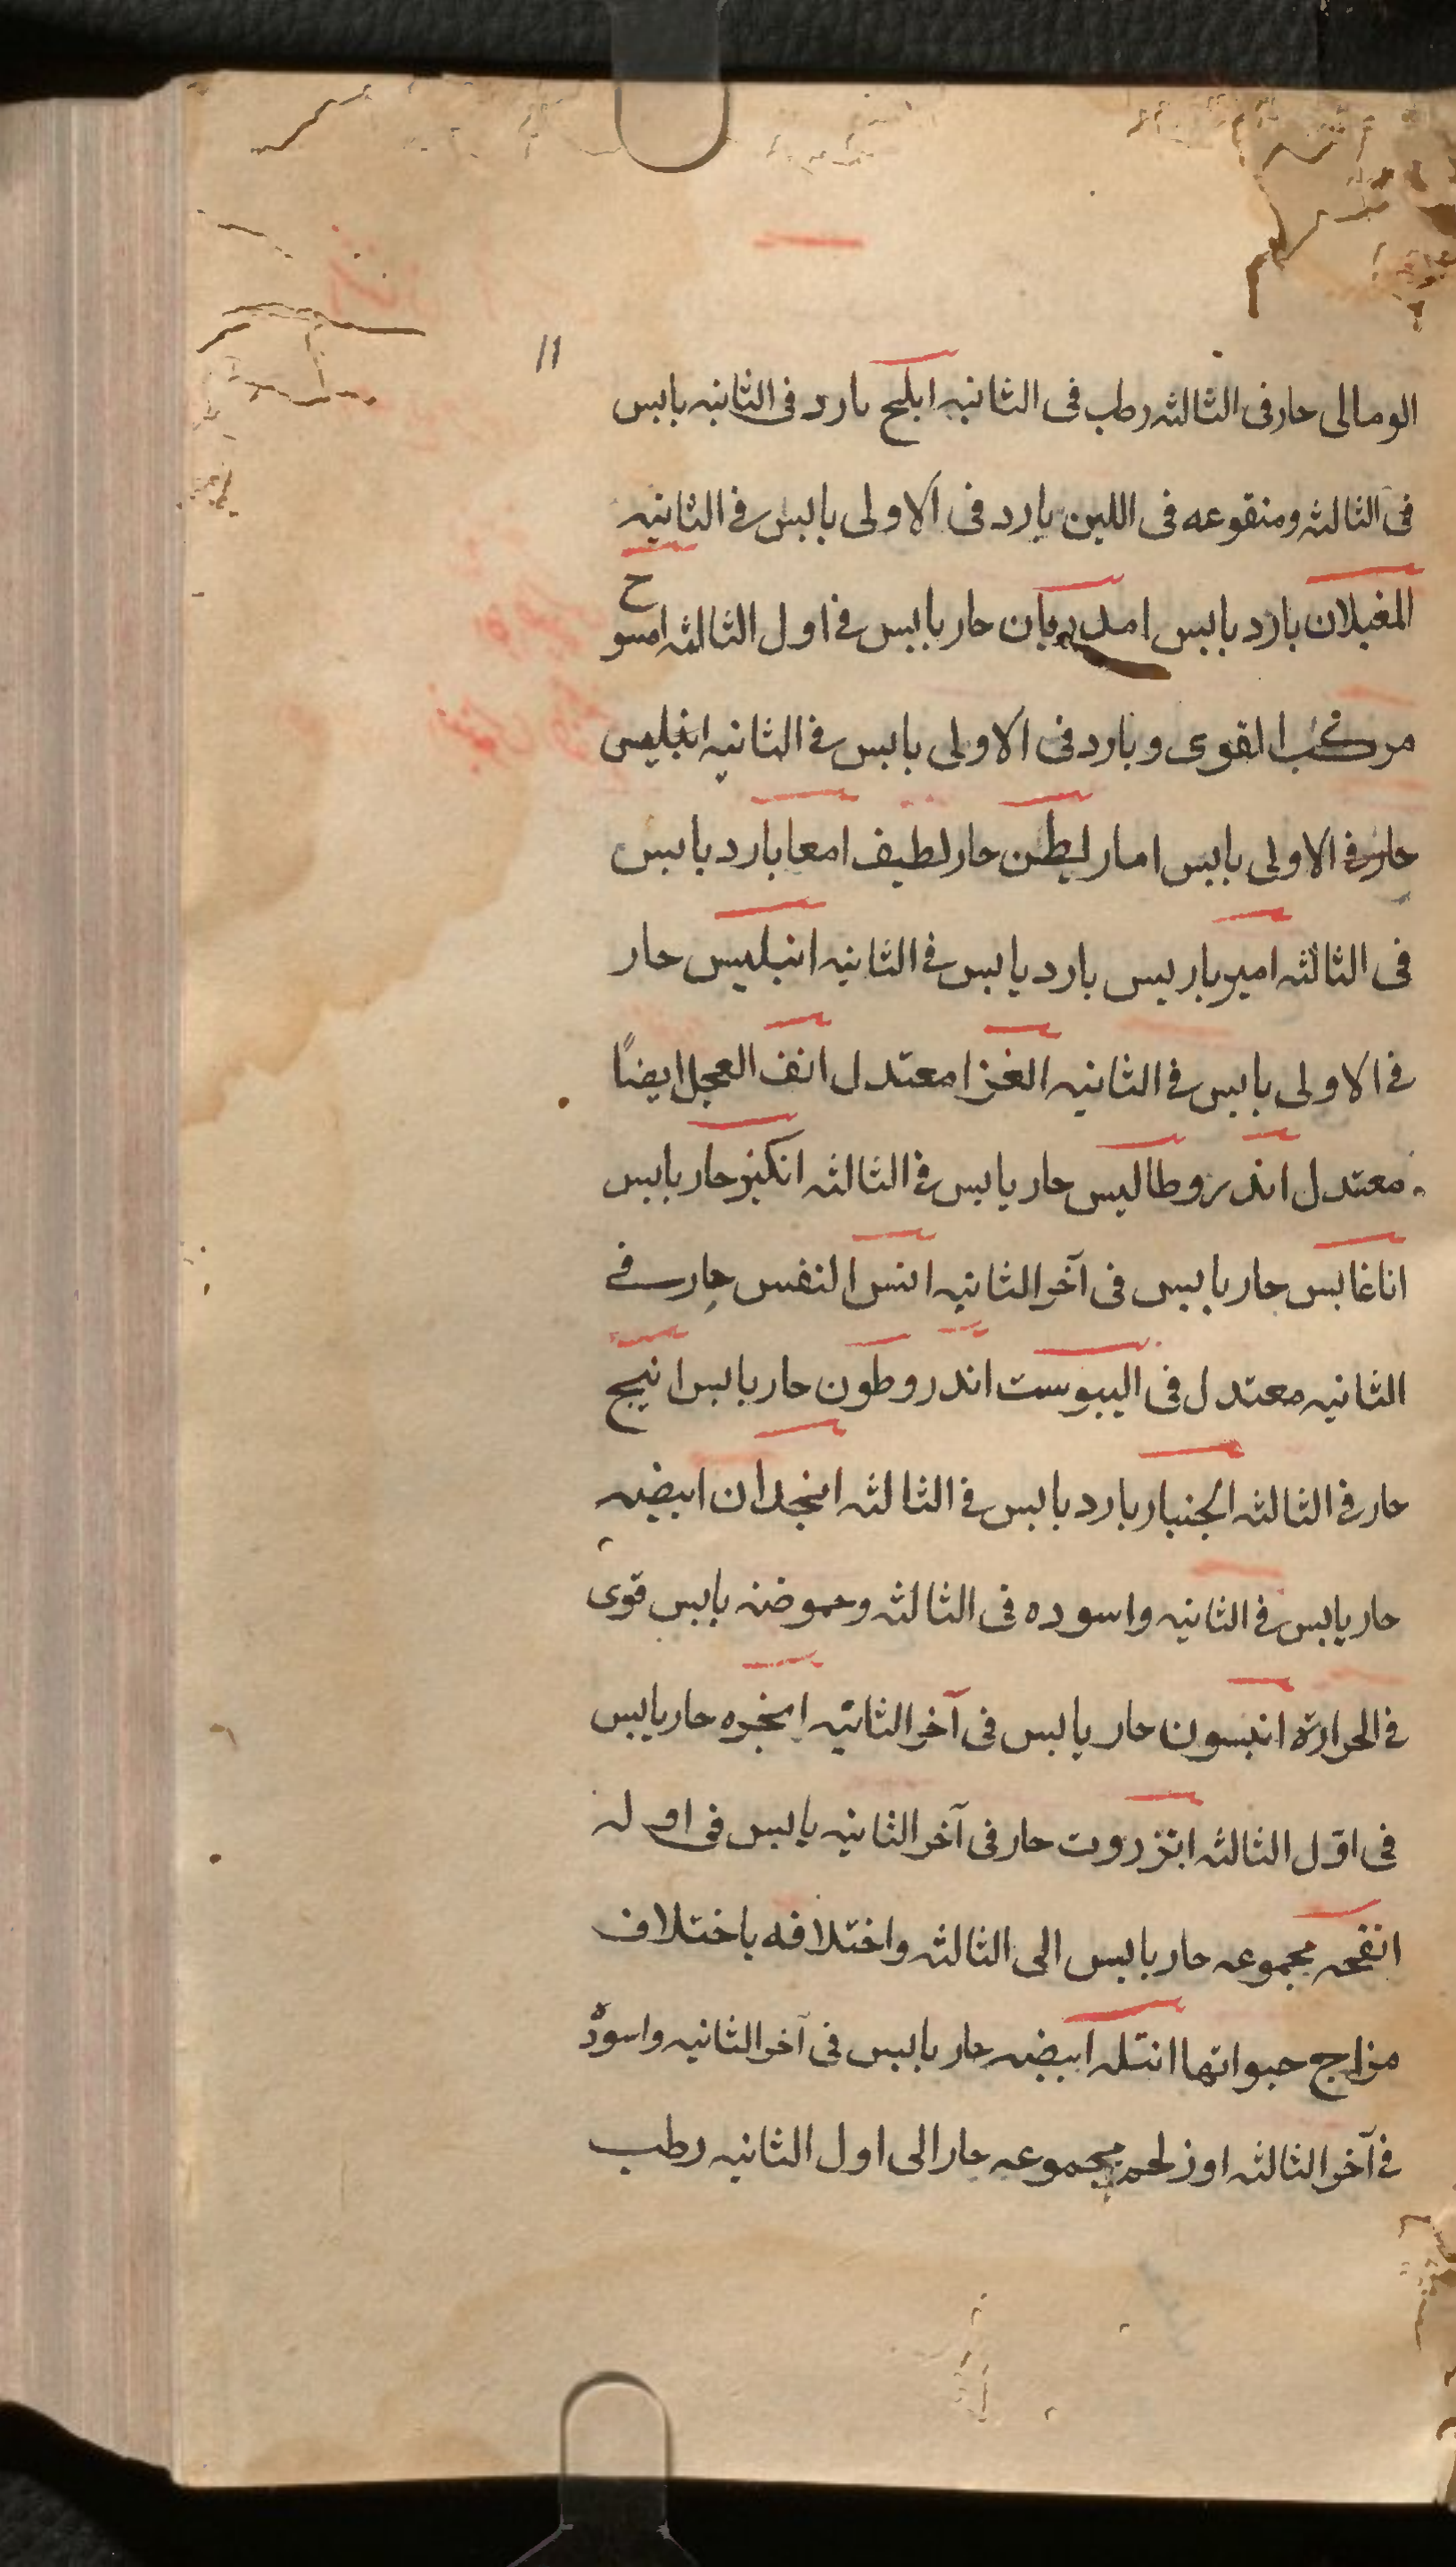 ١١
الومالى حار فى الثالثه رطب فى الثانيه ابليح بارد فى الثانيه يابس
فى الثالثه ومنقوعه فى اللبن بارد فى الاولى يابس فى الثانيه
المغيلان بارد يابس امدريان حار يابس فى اول الثالثه امسوح
مركب القوى وبارد فى الاولى يابس فى الثانيه انبليس
حار فى الاولى يابس امارليطن حار لطيف امعا بارد يابس
فى الثالثه اميرباريس بارد يابس فى الثانيه انبليس حار
فى الاولى يابس فى الثانيه الغزا معتدل انف العجل ايضًا
معتدل اندروطاليس حار يابس فى الثالثه انكبز حار يابس
اناغابس حار يابس فى آخر الثانيه انس النفس حار فے
الثانيه معتدل فى اليبوست اندروطون حار يابس انيج
حار فى الثالثه الجنبار بارد يابس فى الثالثه انجدان ابيضه
حار يابس فى الثانيه واسوده فى الثالثه وحموضنه يابس قوى
فى الحرارة انيسون حار يابس فى آخر الثانيه انجره حار يابس
فى اوّل الثالثه انزروت حار فى آخر الثانيه يابس فى اوله
انفحه مجموعه حار يابس الى الثالثه واختلافه باختلاف
مزاج حيواتها انتله ابيضه حار يابس فى آخر الثانيه واسوده
فى آخر الثالثه اوز لحمه مجموعه حار الى اول الثانيه رطب